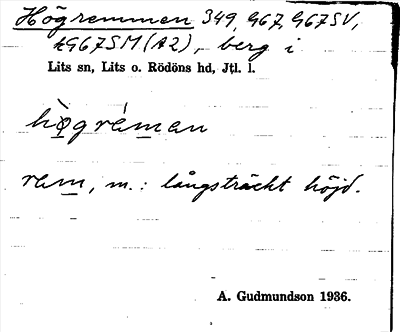 Högremmen 349, 967, 967SV,
1967SM (A2), berg i
Lits sn, Lits o. Rödöns hd, Jtl. l.
hǫ̀grémen
rem, m.: långsträckt höjd.
A. Gudmundson 1936.